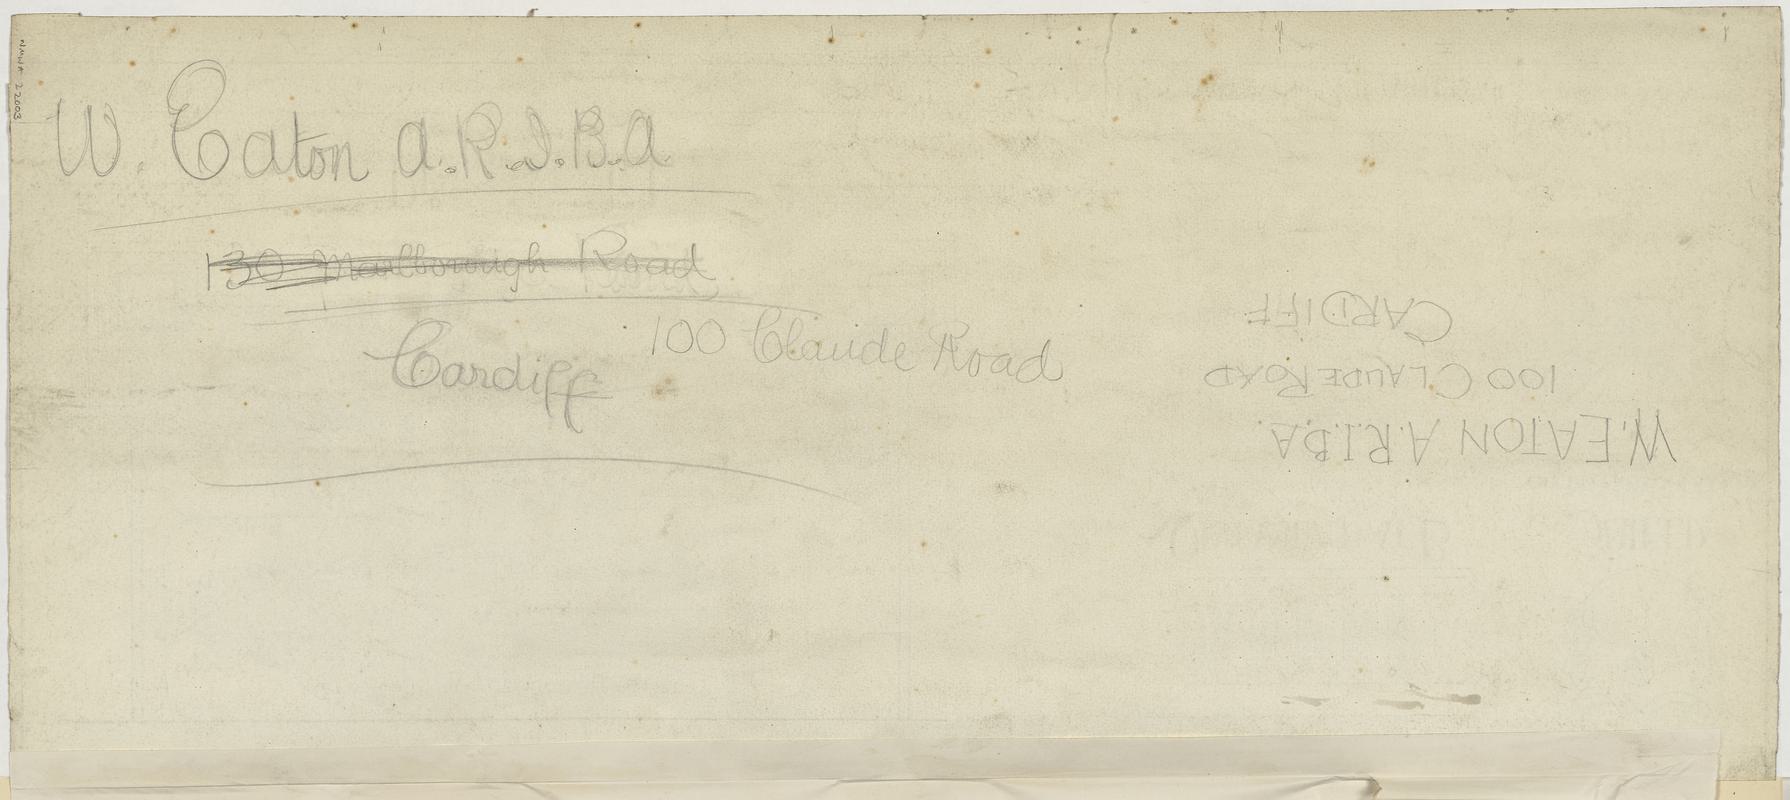 NMWA 22603
W. Eaton A.R.I.B.A
130 Marlborough Road
100 Claude Road
Cardiff
W. EATON A.R.I.B.A.
100 CLAUDE ROAD
CARDIFF